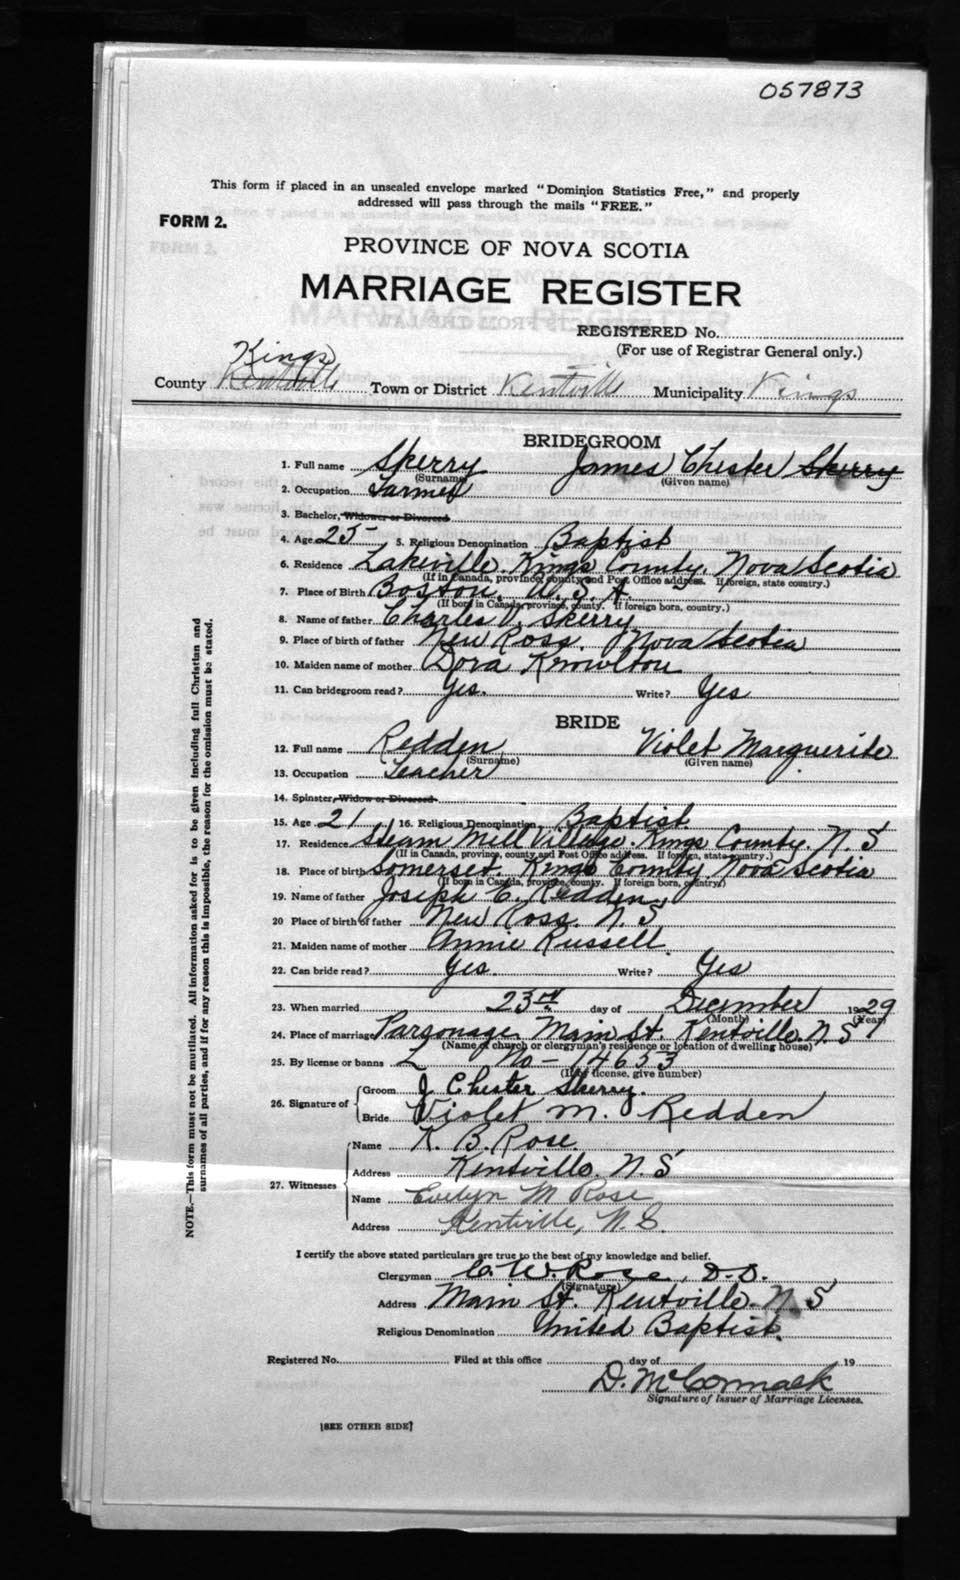 057873
This form if placed in an unsealed envelope marked "Dominion Statistics Free," and properly
addressed will pass through the mails "FREE."
FORM 2.
PROVINCE OF NOVA SCOTIA
MARRIAGE REGISTER
REGISTERED No.
(For use of Registrar General only.)
Kings
County Kentville Town or District Kentville Municipality Kings
BRIDEGROOM
1. Full name Skerry James Chester Skerry
(Surname) (Given name)
2. Occupation Farmer
3. Bachelor, Widower or Divorced
4. Age 25 5. Religious Denomination Baptist
6. Residence Lakeville. Kings County. Nova Scotia
(If in Canada, province, county and Post Office address. If foreign, state country.)
7. Place of Birth Boston. U.S.A.
(If born in Canada, province, county. If foreign born, country.)
8. Name of father Charles V. Skerry
9. Place of birth of father New Ross. Nova Scotia
10. Maiden name of mother Dora Knowlton
11. Can bridegroom read? Yes. Write? Yes
BRIDE
12. Full name Redden Violet Marguerite
(Surname) (Given name)
13. Occupation Teacher
14. Spinster, Widow or Divorced
15. Age 21 16. Religious Denomination Baptist
17. Residence Steam Mill Village. Kings County. N.S
(If in Canada, province, county and Post Office address. If foreign, state country.)
18. Place of birth Somerset. Kings County Nova Scotia
(If born in Canada, province, county. If foreign born, country)
19. Name of father Joseph C. Redden
20 Place of birth of father New Ross. N.S
21. Maiden name of mother Annie Russell
22. Can bride read? Yes. Write? Yes
23. When married 23rd day of December 1929
(Month) (Year)
24. Place of marriage Parsonage Main St. Kentville. N.S
(Name of church or clergyman's residence or location of dwelling house)
25. By license or banns L No - 14653
(If by license, give number)
26. Signature of
Groom J Chester Skerry.
Bride Violet M. Redden
27. Witnesses
Name K. B. Rose
Address Kentville. N.S
Name Evelyn M Rose
Address Kentville, N.S.
I certify the above stated particulars are true to the best of my knowledge and belief.
Clergyman C. W. Rose, D.D.
(Signature)
Address Main St. Kentville. N.S
Religious Denomination United Baptist.
Registered No. Filed at this office day of 19
D. McCormack
Signature of Issuer of Marriage Licenses.
[SEE OTHER SIDE]
NOTE.—This form must not be mutilated. All information asked for is to be given including full Christian and
surnames of all parties, and if for any reason this is impossible, the reason for the omission must be stated.